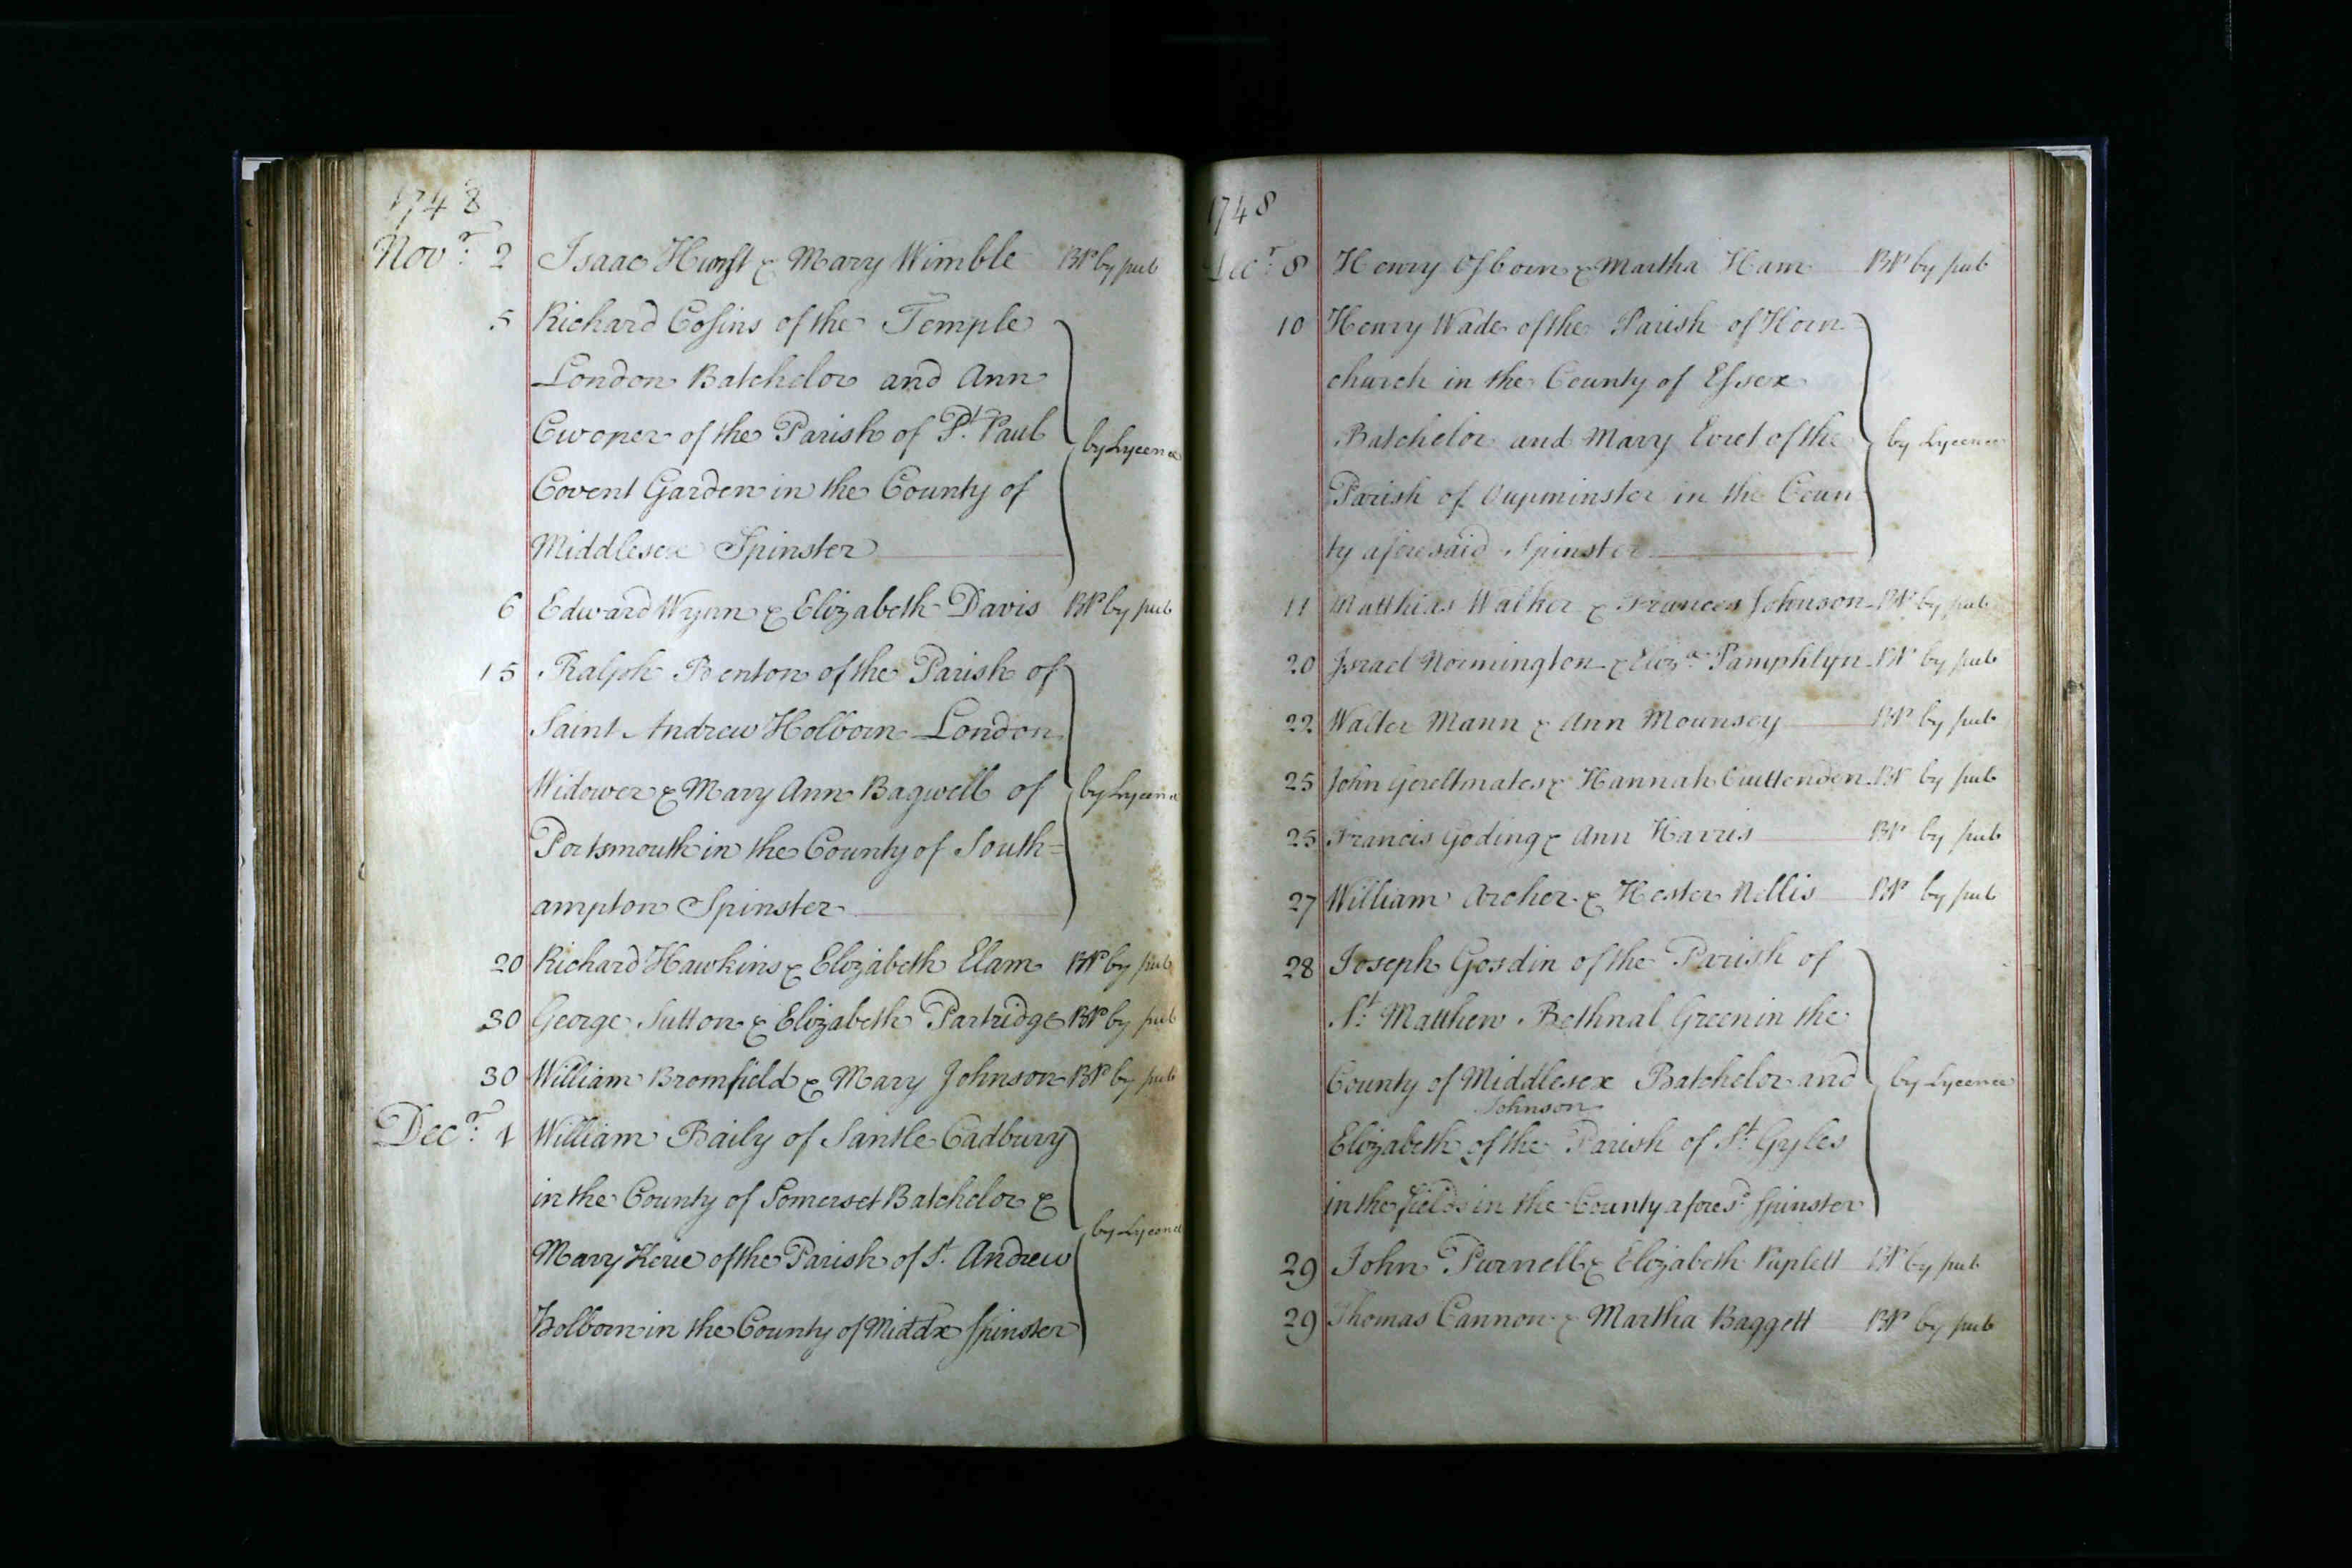 1748
Novr. 2 Isaac Hurst & Mary Wimble BP by pub
5 Richard Cosins of the Temple
London Batchelor and Ann
Cwoper of the Parish of St. Paul
Covent Garden in the County of
Middlesex Spinster
by Lycence
6 Edward Wynn & Elizabeth Davis BP by pub
15 Ralph Benton of the Parish of
Saint Andrew Holborn London
Widower & Mary Ann Bagwell of
Portsmouth in the County of South=
ampton Spinster
by Lycence
20 Richard Hawkins & Elizabeth Elam BP by pub
30 George Sutton & Elizabeth Partridge BP by pub
30 William Bromfield & Mary Johnson BP by pub
Decr. 1 William Baily of Cadbury
in the County of Somerset Batchelor &
Mary of the Parish of St. Andrew
Holborn in the County of Middx Spinster
by Lycence
1748
Decr. 8 Henry Osborn & Martha Ham BP by pub
10 Henry Wade of the Parish of Horn
church in the County of Essex
Batchelor and Mary Evret of the
Parish of Oupminster in the Coun
ty aforesaid Spinster
by Lycence
11 Matthias Walker & Frances Johnson BP by pub
20 Israel Normington & Eliza. Pamphlyn BP by pub
22 Walter Mann & Ann Mounsey BP by pub
25 John & Hannah Cruttenden BP by pub
25 Francis Goding & Ann Harris BP by pub
27 William Archer & Hester Nellis BP by pub
28 Joseph Gosdin of the Parish of
St. Matthew Bethnal Green in the
County of Middlesex Batchelor and
Johnson
Elizabeth of the Parish of St. Gyles
in the fields in the County aforesd. Spinster
by Lycence
29 John Purnell & Elizabeth Puplett BP by pub
29 Thomas Cannon & Martha Baggett BP by pub